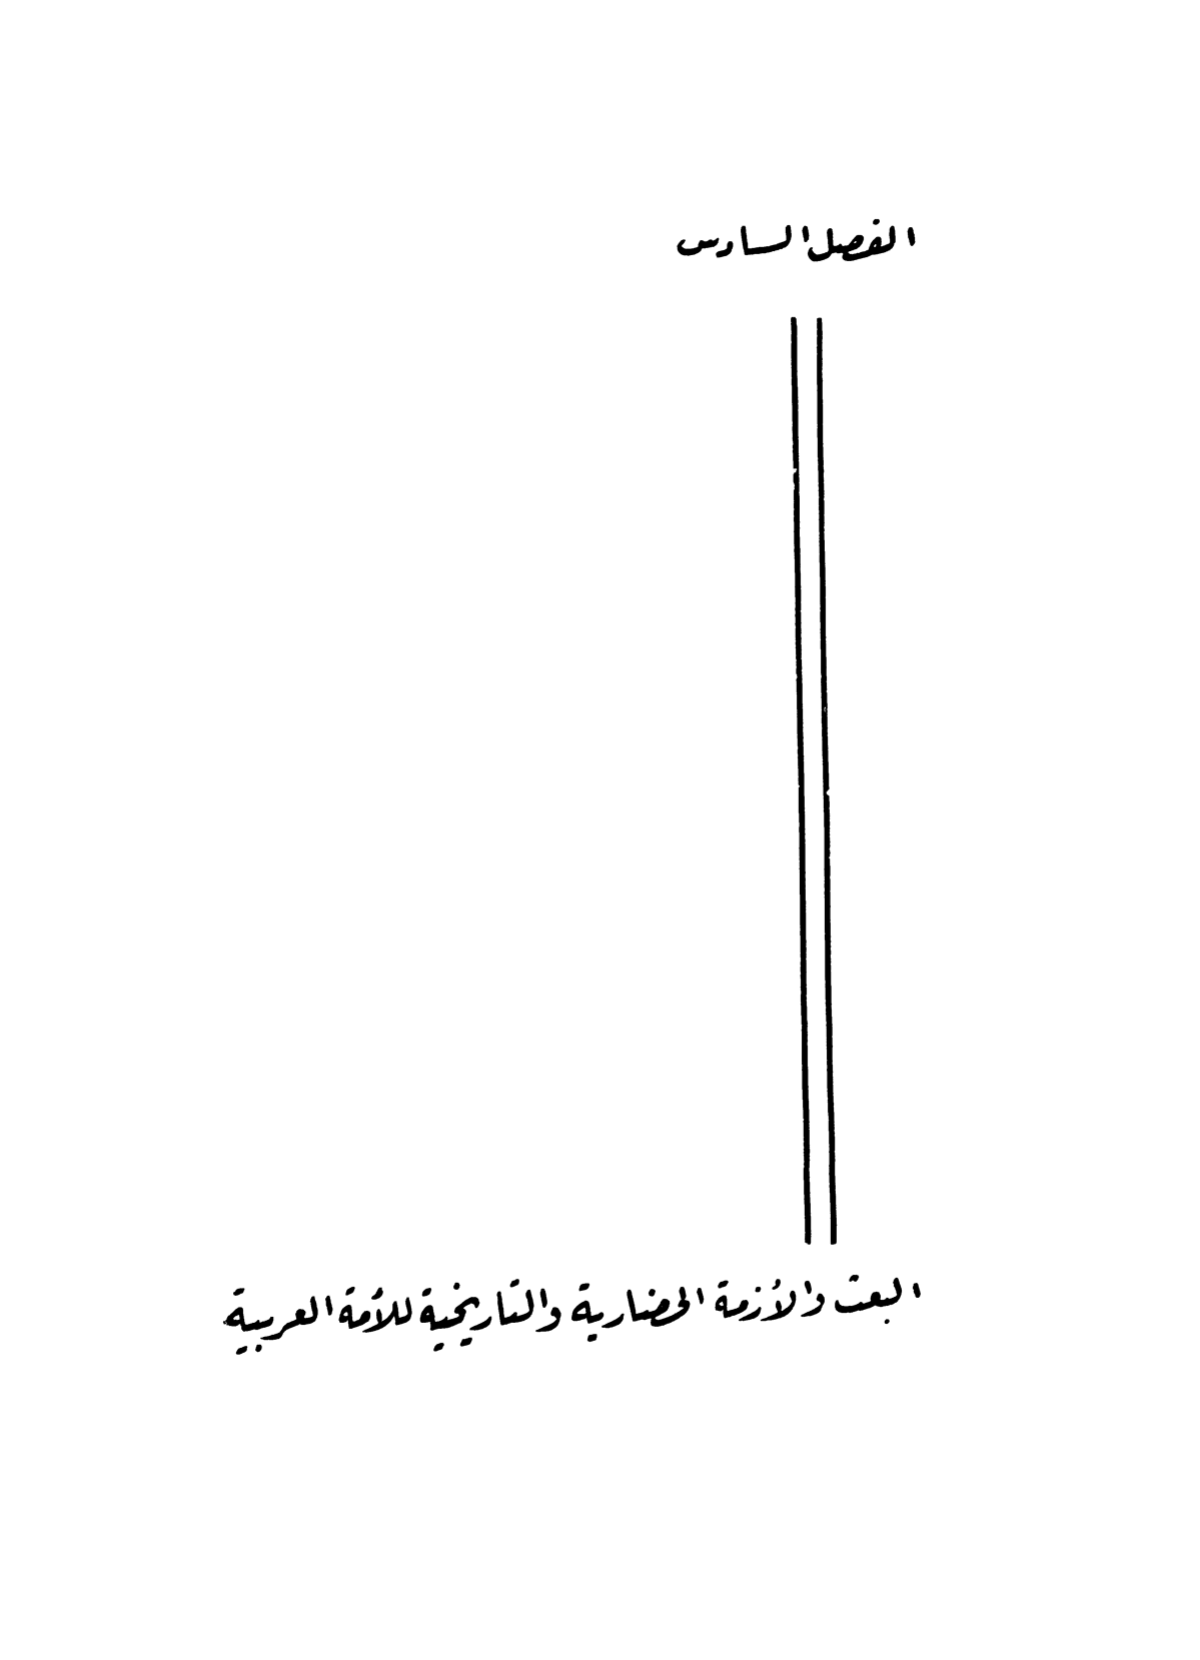 الفصل السادس
البعث والأزمة الحضارية والتاريخية للأمة العربية